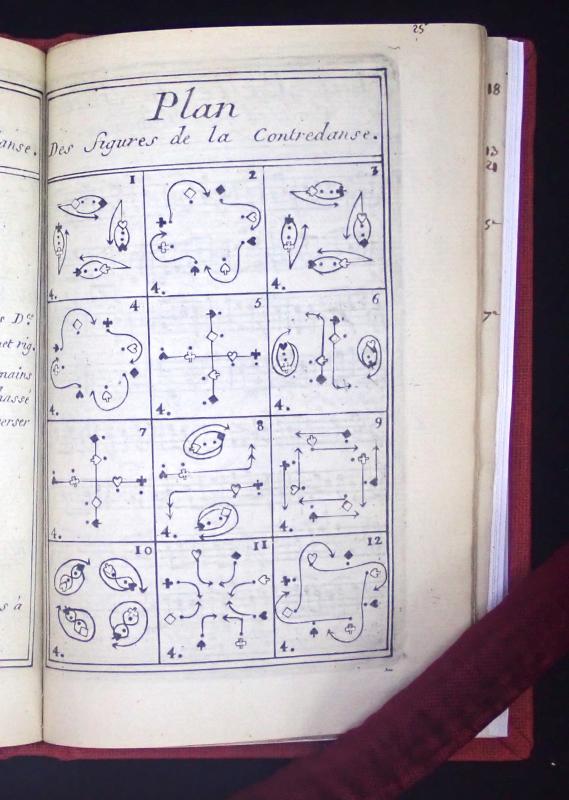 25
Plan
Des figures de la Contredanse.
1 2 3
4. 4. 4.
4 5 6
4. 4. 4.
7 8 9
4. 4. 4.
10 11 12
4. 4. 4.
anse.
s D.
et rig.
mains
hassé
erser
s à
18
13
21
5
7